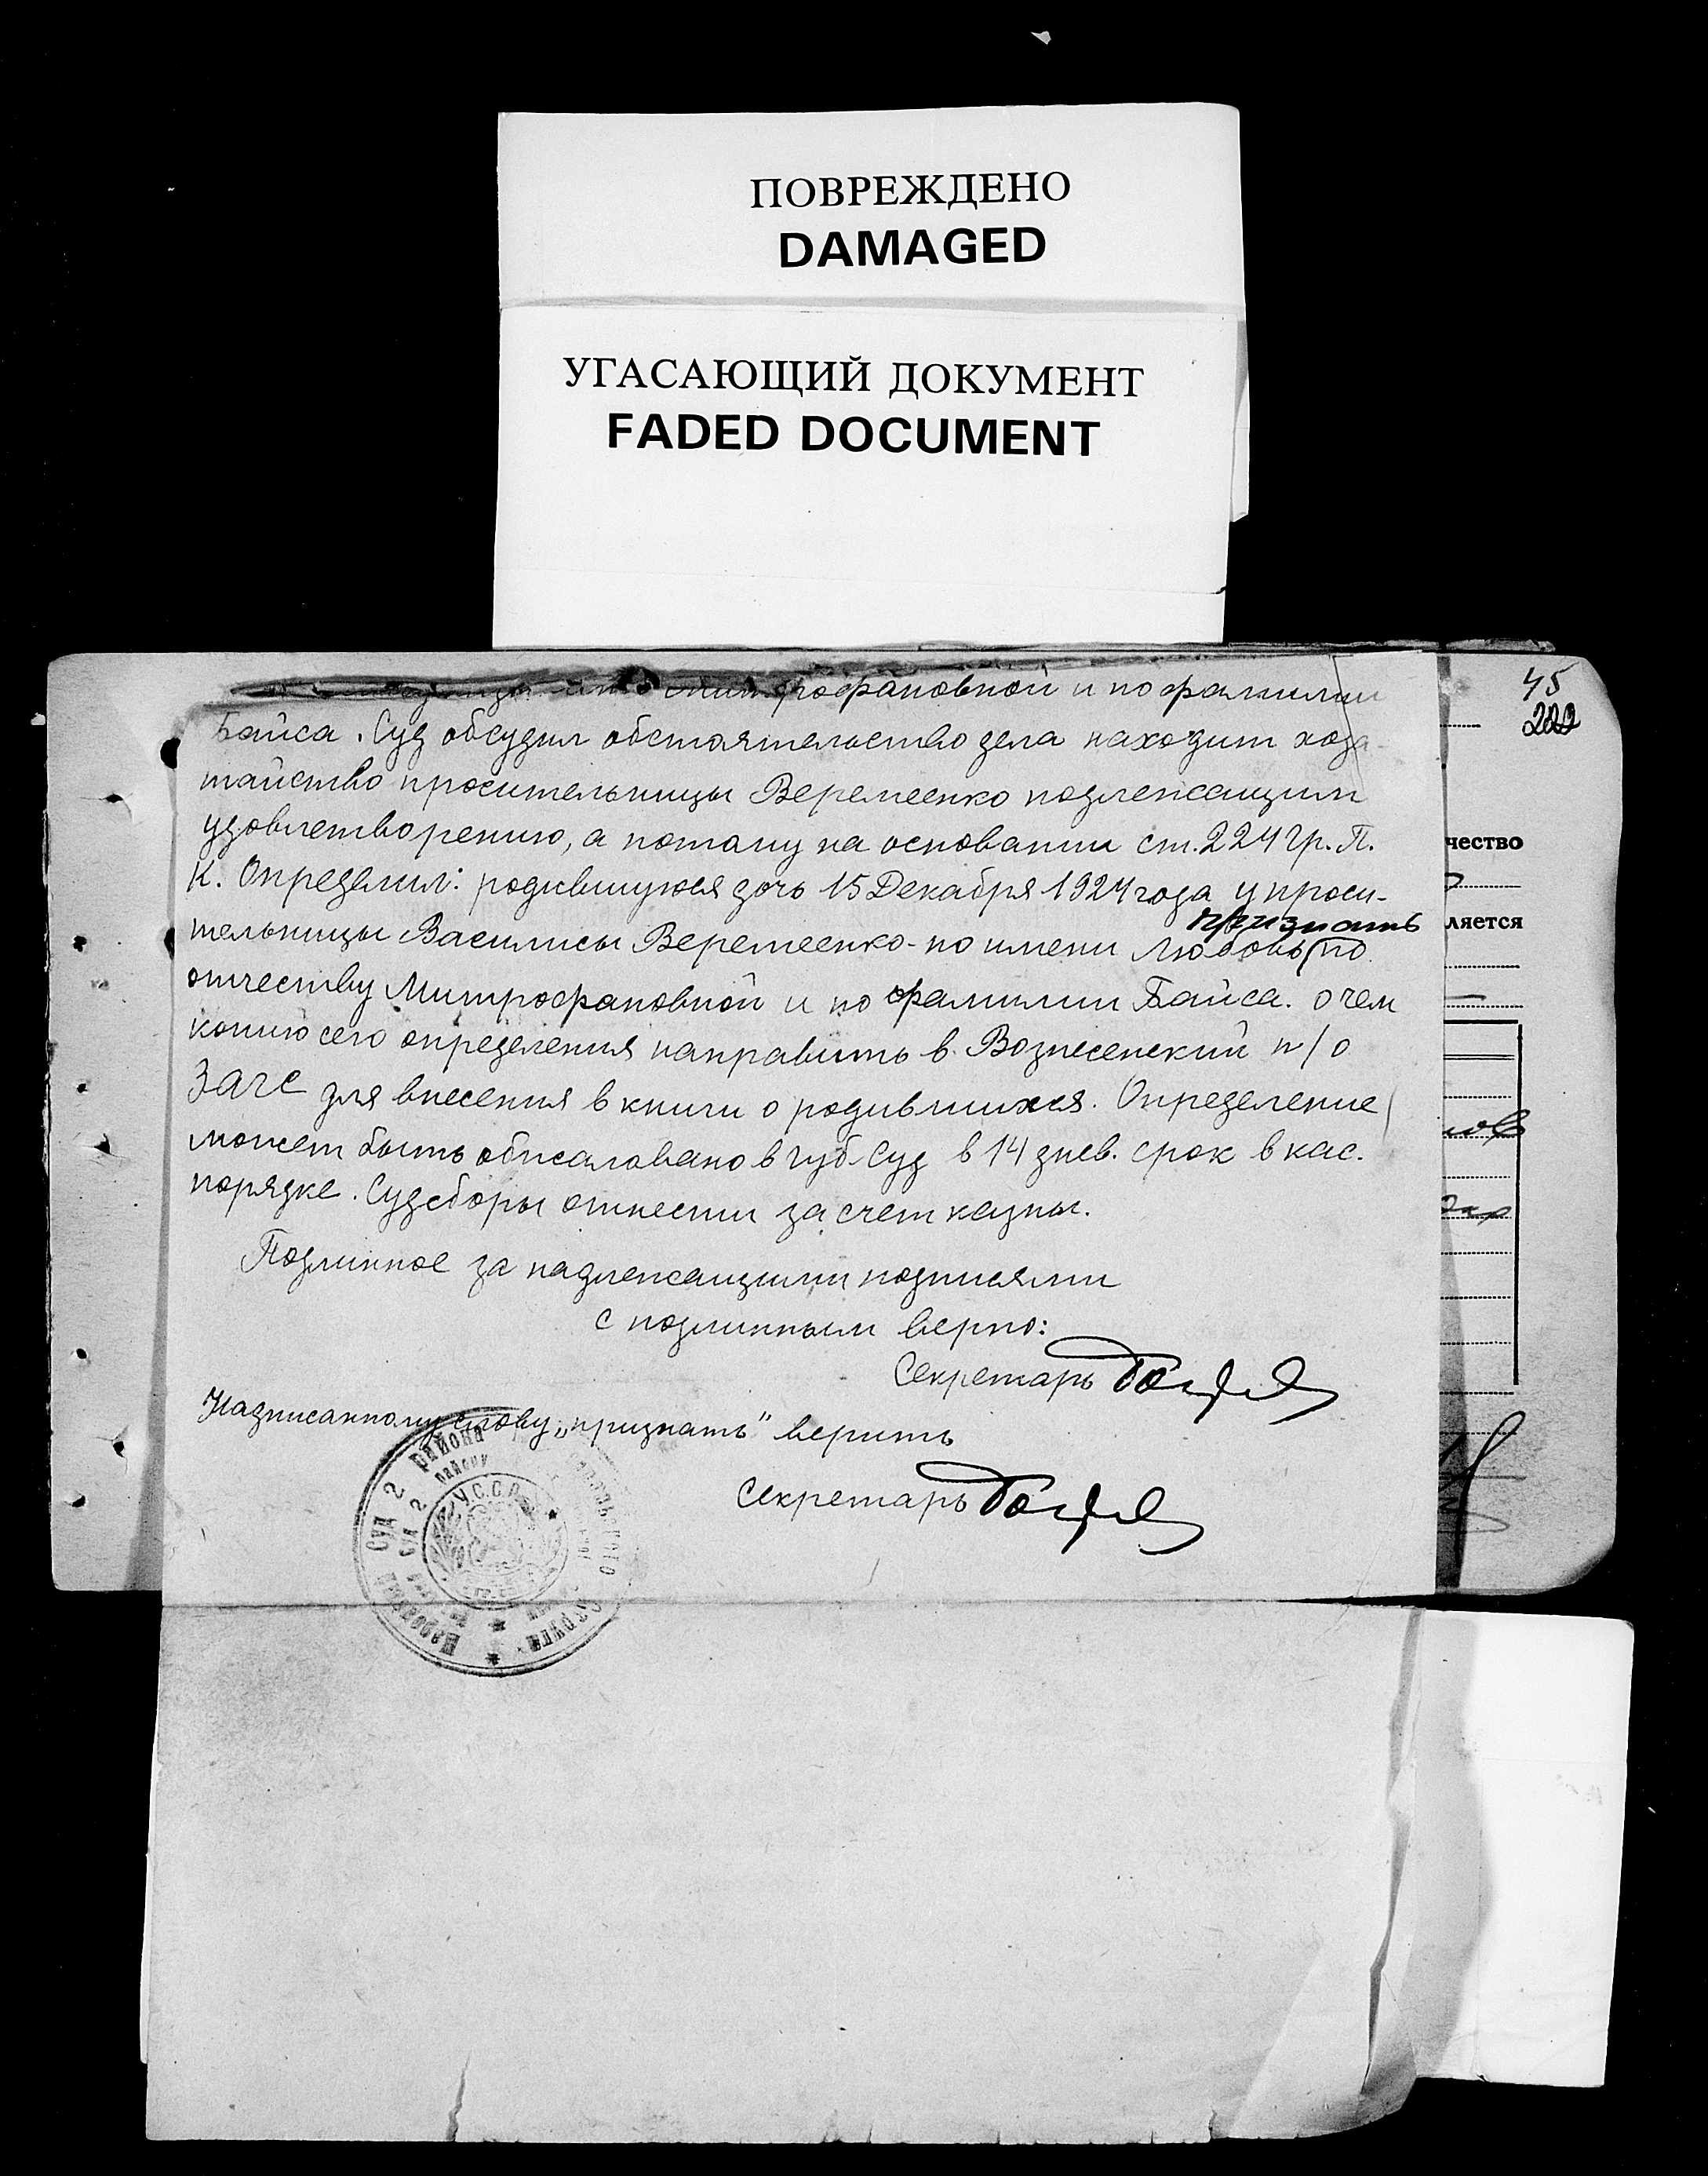 ПОВРЕЖДЕНО
DAMAGED
УГАСАЮЩИЙ ДОКУМЕНТ
FADED DOCUMENT
45
222
Митрофановной и по фамилии
Байса. Суд обсудил обстоятельство дела находит хода-
тайство просительницы Веремеенко подлежащим
удовлетворению, а потому на основании ст. 224 Гр. П.
К. Определил: родившуюся дочь 15 Декабря 1924 года у проси-
признать
тельницы Василисы Веремеенко - по имени Любовь, по
отчеству Митрофановной и по фамилии Байса. о чем
копию сего определения направить в Вознесенский п/о
Загс для внесения в книги о родившихся. Определение
может быть обжаловано в губ-Суд в 14 днев. срок в кас.
порядке. Судсборы отнести за счет казны.
Подлинное за надлежащими подписями
с подлинным верно:
Секретарь
Надписанному слову „признать" верить
Секретарь
Народный суд 2 района
У.С.С.Р.
округа
чество
ляется